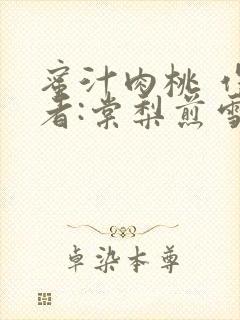 蜜汁肉桃
者:棠梨煎雪
卓染本尊